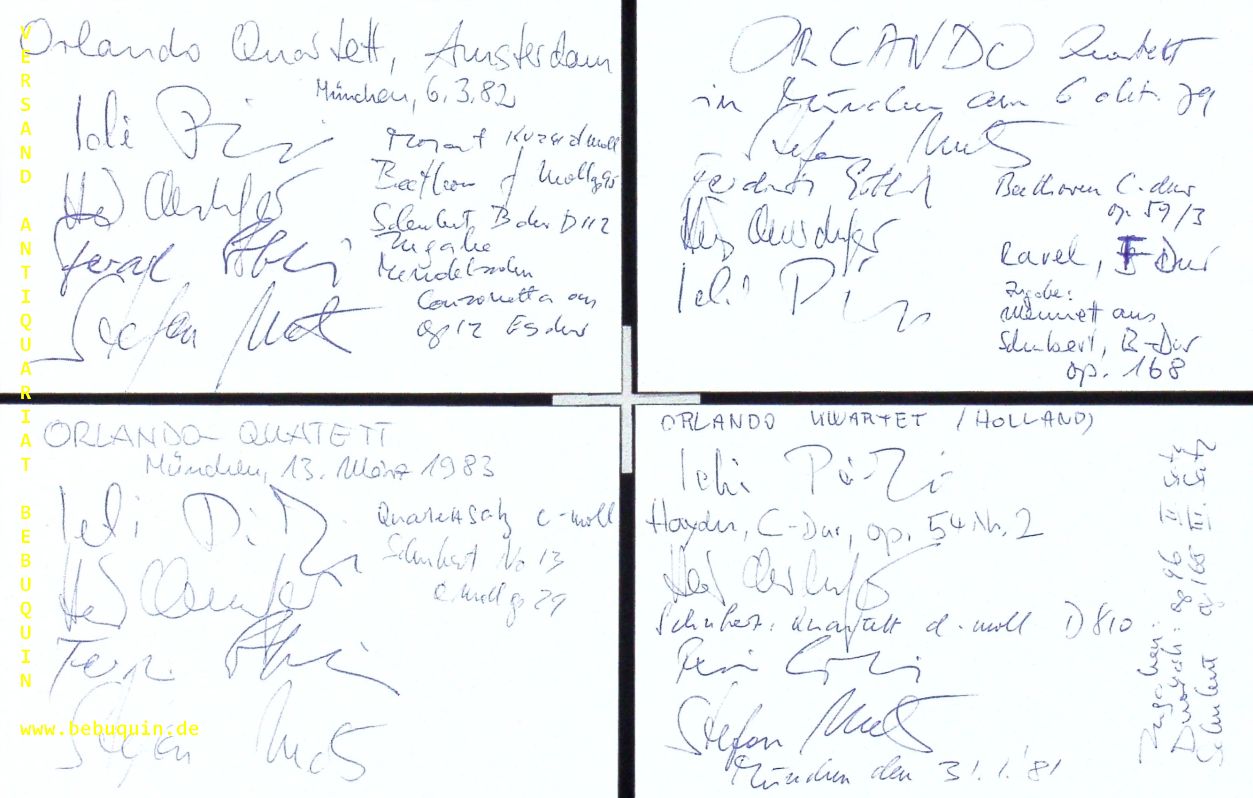 Orlando Quartett, Amsterdam
München, 6.3.82
Mozart d moll
Beethoven f moll op 95
Schubert B dur D 112
Zugabe
Mendelssohn
Canzonetta aus
op 12 Es dur
Stefan Metz
ORLANDO Quartett
in München am 6 okt. 79
Stefan Metz
Beethoven C-dur
op. 59/3
Ravel, F-Dur
Zugabe:
Menuett aus
Schubert, B-Dur
op. 168
ORLANDO-QUATETT
München, 13. März 1983
Quartettsatz c-moll
Schubert No 13
a moll op 29
Stefan Metz
ORLANDO KWARTET /HOLLAND)
Haydn, C-Dur, op. 54 Nr. 2
Schubert: Quartett d-moll D 810
Stefan Metz
München den 31.1.'81
Zugaben:
Dvorak: op 96 II. Satz
Schubert op 168 III. Satz
VERSAND ANTIQUARIAT BEBUQUIN
www.bebuquin.de